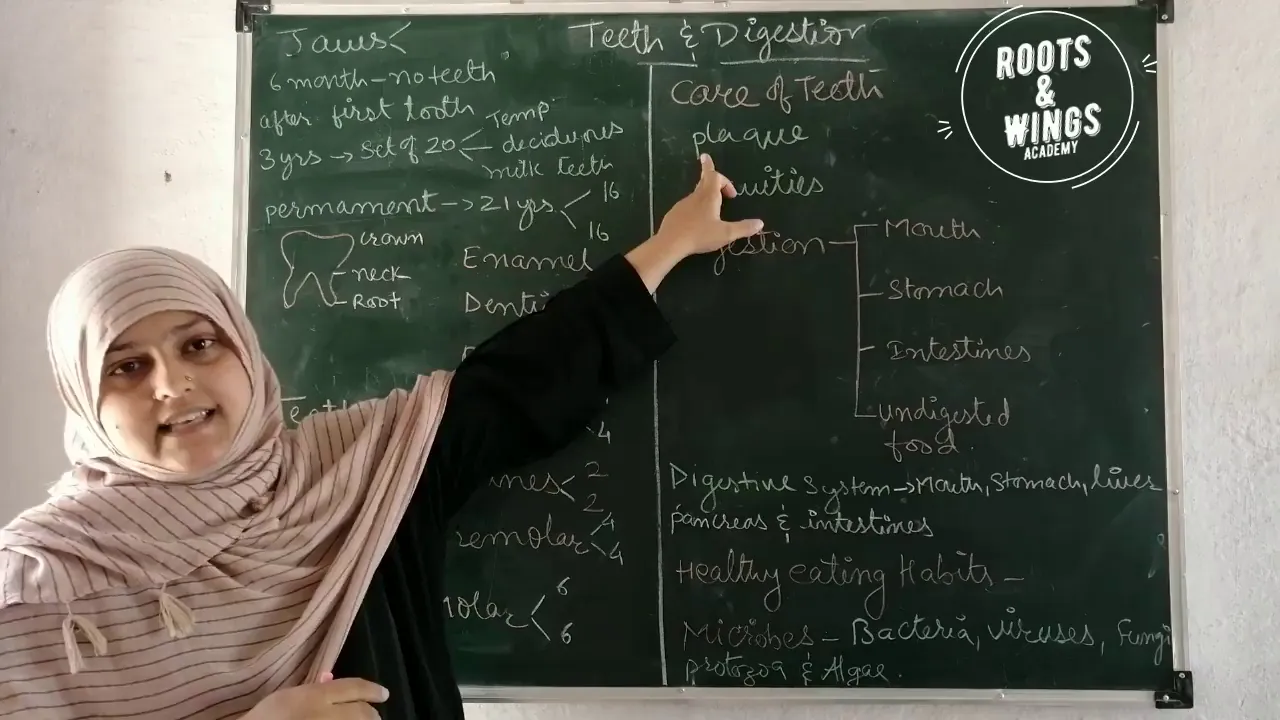 Teeth & Digestion
Jaws
6 month - no teeth
after first tooth
3 yrs → Set of 20
Temp
deciduous
milk teeth
permament → 21 yrs
16
16
crown
neck
Root
Enamel
4
2
2
4
4
6
6
Care of Teeth
plaque
Mouth
Stomach
Intestines
undigested
food.
Digestive System → Mouth, Stomach, liver
pancreas & intestines
Healthy eating Habits -
Microbes - Bacteria, viruses, Fungi
protozoa & Algae.
ROOTS
&
WINGS
ACADEMY